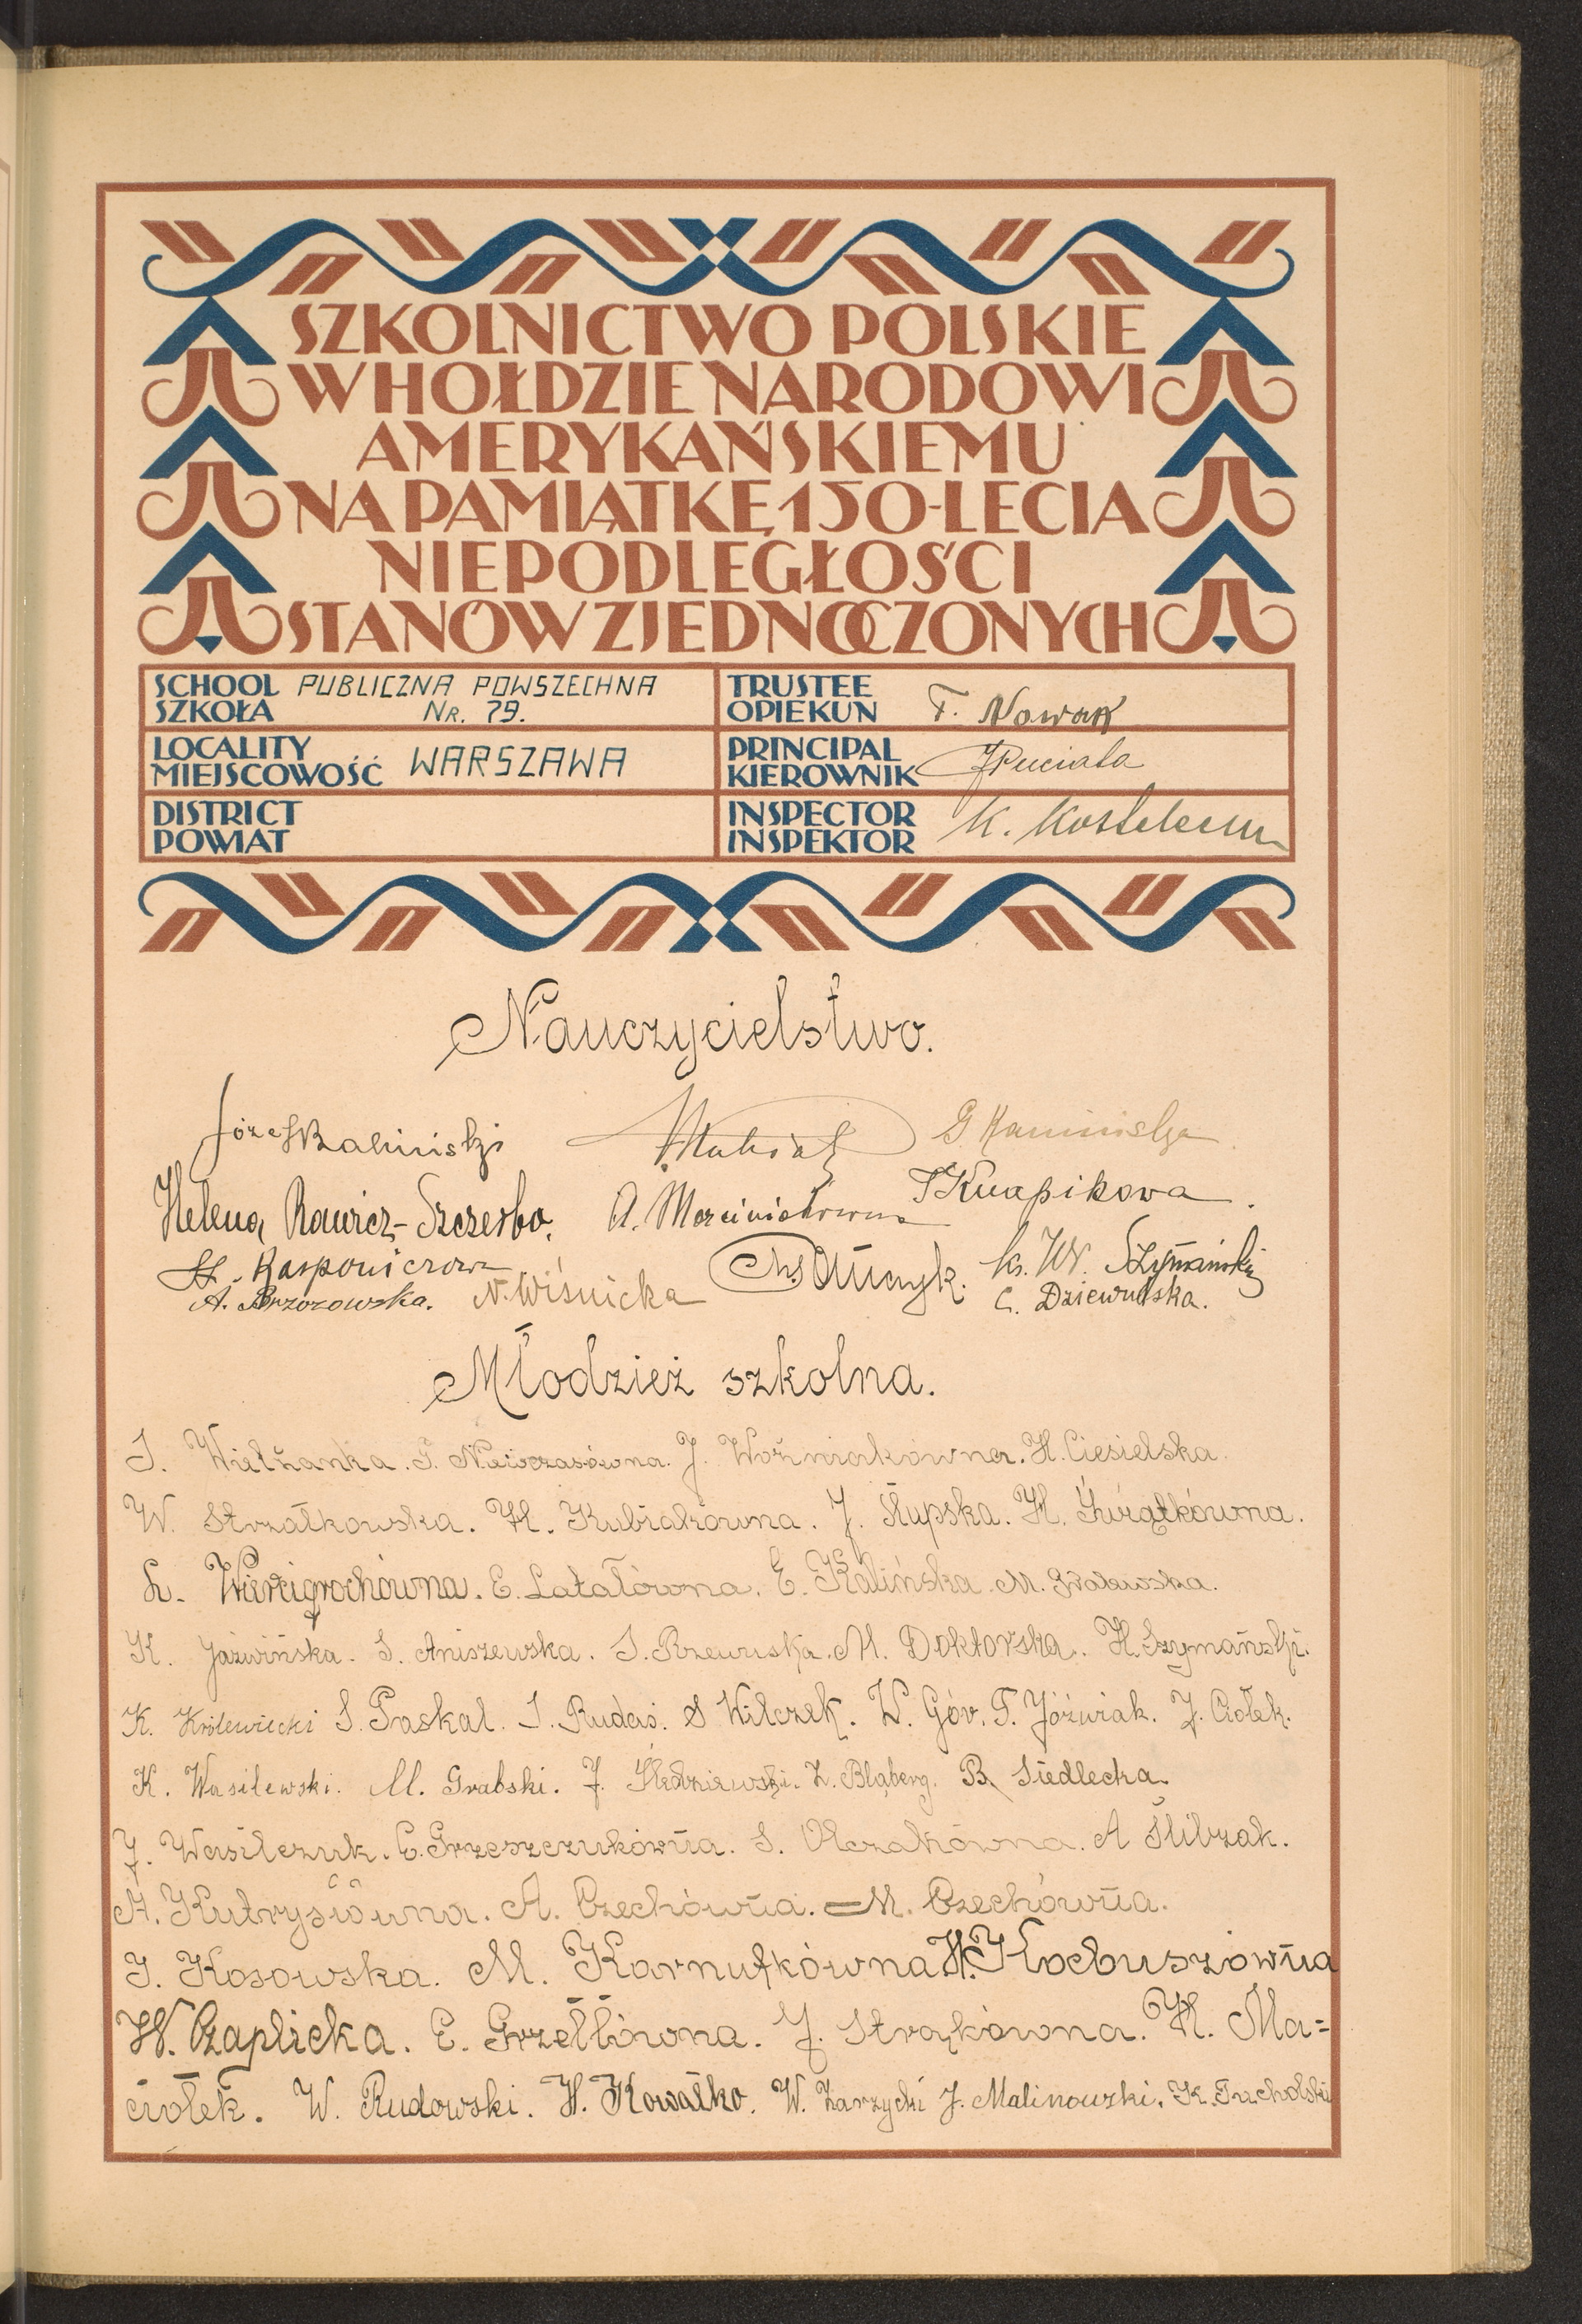 SZKOLNICTWO POLSKIE
W HOŁDZIE NARODOWI
AMERYKAŃSKIEMU
NA PAMIĄTKĘ 150-LECIA
NIEPODLEGŁOŚCI
STANÓW ZJEDNOCZONYCH
SCHOOL PUBLICZNA POWSZECHNA
SZKOŁA NR. 79.
TRUSTEE
OPIEKUN F. Nowak
LOCALITY
MIEJSCOWOŚĆ WARSZAWA
PRINCIPAL
KIEROWNIK JPuciata
DISTRICT
POWIAT
INSPECTOR
INSPEKTOR K.
Nauczycielstwo.
Józef Kaliński G Kamińska
Helena Rawicz-Szczerbo. A. Marciniakówna TKnapikowa
St. Kasponiczowa ks. W. Szymański
A. Brzozowska. N. Wiśnicka C. Dziewulska.
Młodzież szkolna.
I. Wielżanka. S. Niewczasówna. J. Woźniakówna. H. Ciesielska.
W. Strzałkowska. H. Kubiakówna. J. Słupska. H. Kwiatkówna.
L. Wiercigrochówna. E. Latałówna. E. Kalińska M.
K. Jaźwińska. S. Aniszewska. I. Rzewuska. M. Doktorska. H. Szymański.
K. Królewiecki S. Paskal. I. Rudaś. S Wilczek. W. Gov. T. Jóźwiak. J. Ciołek.
K. Wasilewski. M. Grabski. J. Śledziewski. Z. Blaberg. B. Siedlecka.
J. Wasilczuk. E. Grzeszczukówna. S. Olczakówna. A Ślibzak.
A. Kutrysiówna. A. Czechówna. M. Czechówna.
J. Kosowska. M. Karnutkówna H. Kłobuszówna
W. Czaplicka. E. Grzellówna. J. Strąkówna. H. Ma=
ciołek. W. Rudowski. H. Kowałko. W. Zarzycki J. Malinowski. K. Tucholski